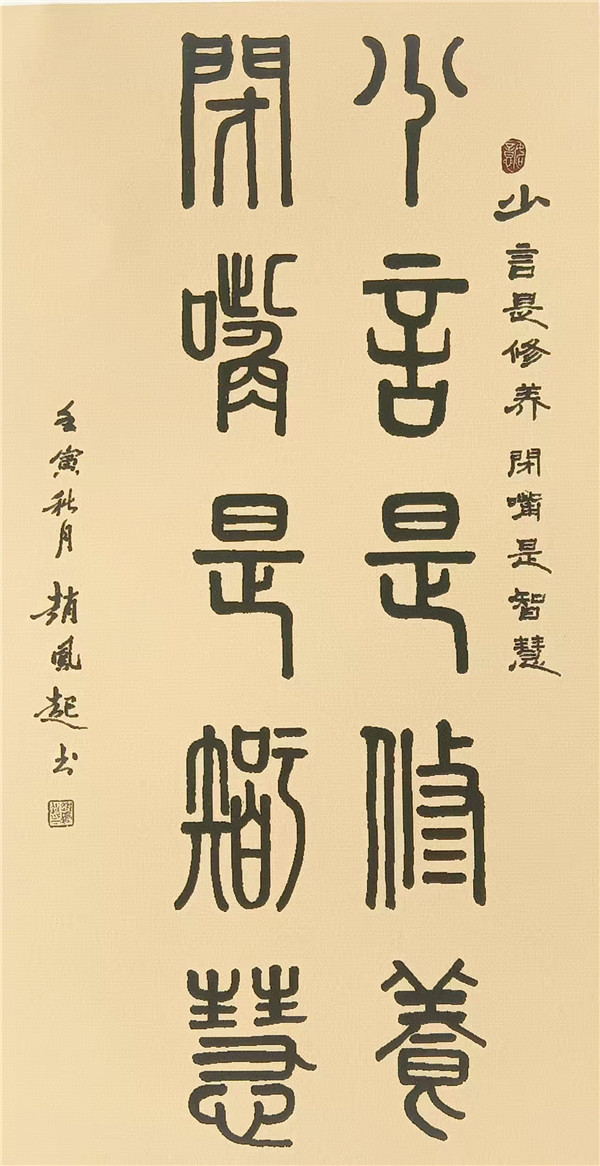 少言是修养閉嘴是智慧
少言是修養
閉嘴是智慧
壬寅秋月趙鳳起书